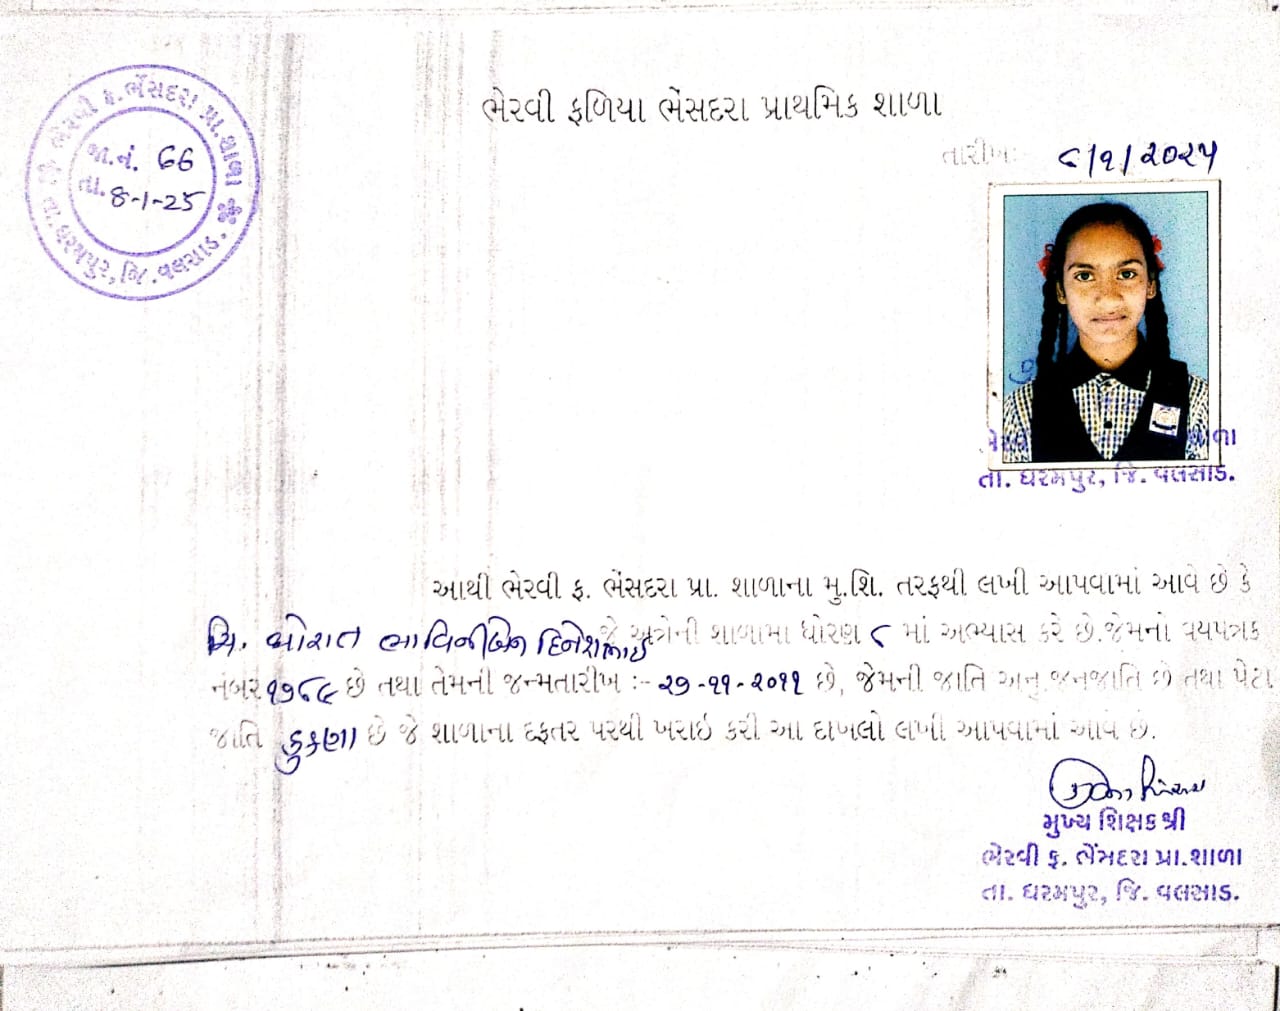 ભેરવી ફ. ભેંસદરા પ્રા.શાળા
જા.નં. 66
તા. 8-1-25
તા. ધરમપુર, જિ. વલસાડ.
ભેરવી ફળિયા ભેંસદરા પ્રાથમિક શાળા
તારીખઃ ૮/૧/૨૦૨૫
તા. ધરમપુર, જિ. વલસાડ.
આથી ભેરવી ફ. ભેંસદરા પ્રા. શાળાના મુ.શિ. તરફથી લખી આપવામાં આવે છે કે
ચિ. થોરાત ભાવિનીબેન દિનેશભાઈ જે અત્રેની શાળામા ધોરણ ૮ માં અભ્યાસ કરે છે.જેમનો વયપત્રક
નંબર ૧૭૮૯ છે તથા તેમની જન્મતારીખ :- ૨૭-૧૧-૨૦૧૧ છે, જેમની જાતિ અનુ.જનજાતિ છે તથા પેટા
જાતિ કુકણા છે જે શાળાના દફતર પરથી ખરાઇ કરી આ દાખલો લખી આપવામાં આવે છે.
મુખ્ય શિક્ષકશ્રી
ભેરવી ફ. ભેંસદરા પ્રા.શાળા
તા. ધરમપુર, જિ. વલસાડ.